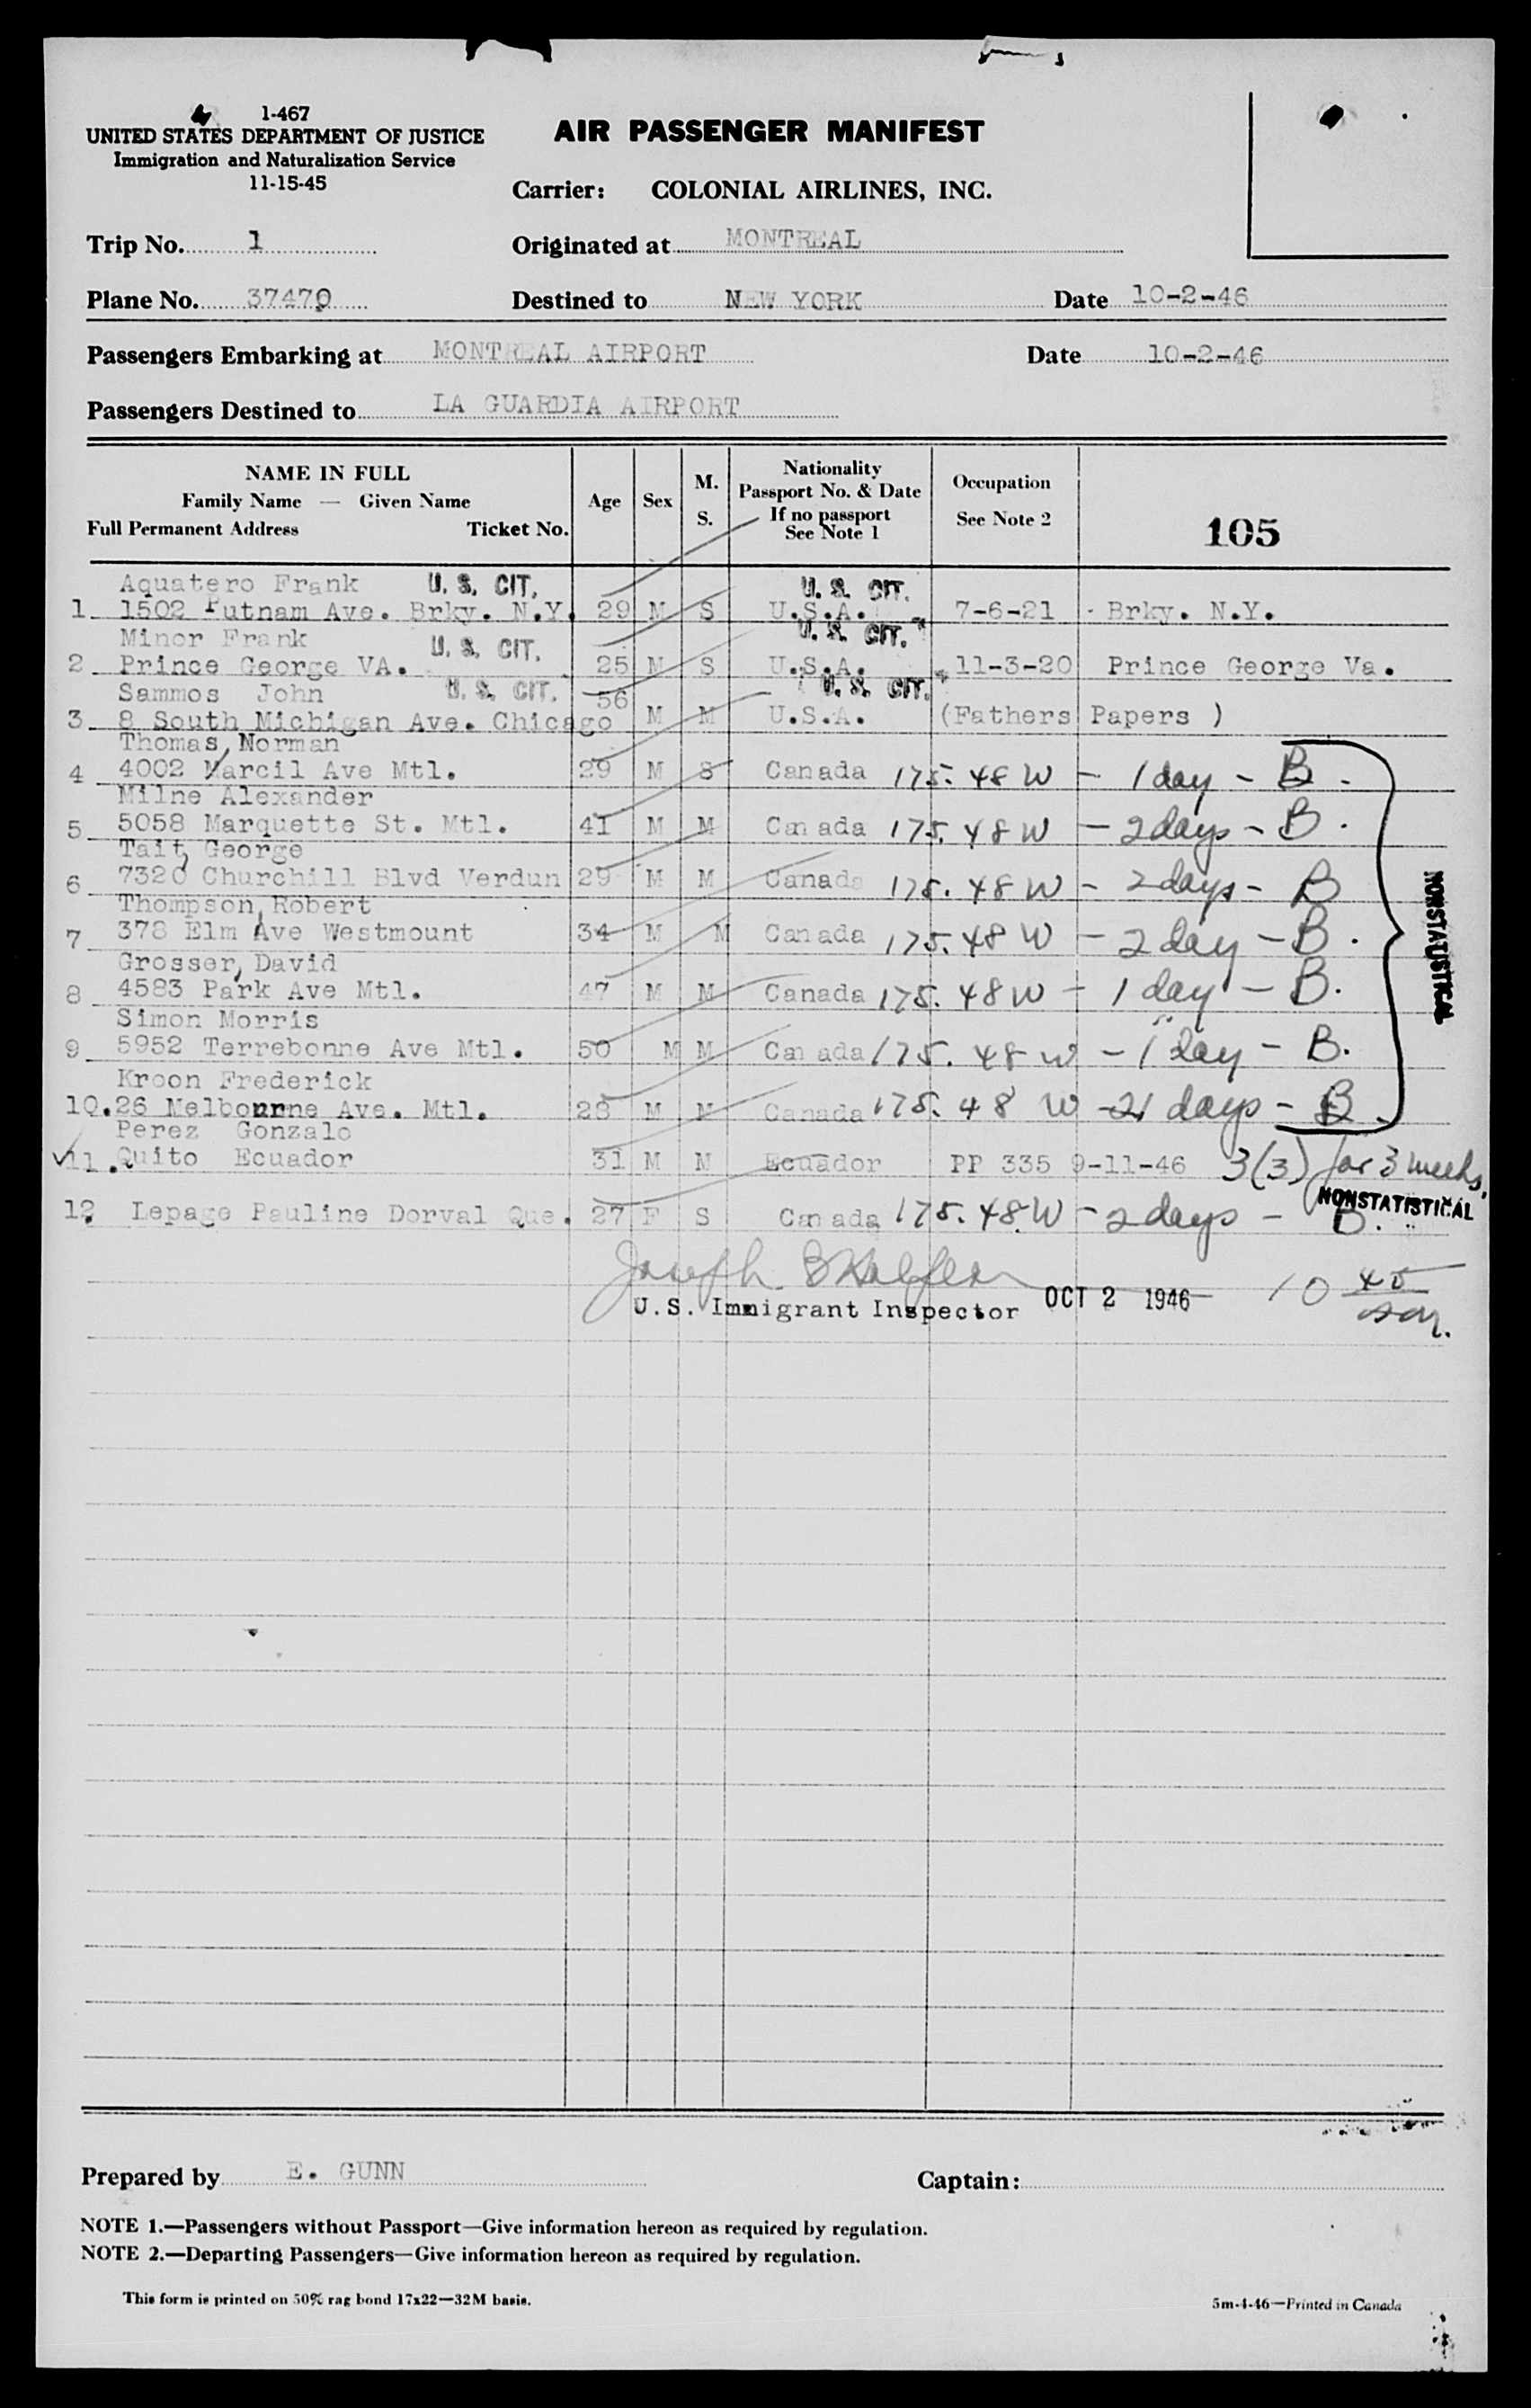 1-467
UNITED STATES DEPARTMENT OF JUSTICE
Immigration and Naturalization Service
11-15-45
AIR PASSENGER MANIFEST
Carrier: COLONIAL AIRLINES, INC.
Trip No. 1 Originated at MONTREAL
Plane No. 37470 Destined to NEW YORK Date 10-2-46
Passengers Embarking at MONTREAL AIRPORT Date 10-2-46
Passengers Destined to LA GUARDIA AIRPORT
NAME IN FULL
Family Name — Given Name
Full Permanent Address Ticket No.
Age Sex M. S.
Nationality
Passport No. & Date
If no passport
See Note 1
Occupation
See Note 2
105
Aquatero Frank U. S. CIT. U. S. CIT.
1 1502 Putnam Ave. Brky. N.Y. 29 M S U.S.A. 7-6-21 Brky. N.Y.
Minor Frank U. S. CIT. U. S. CIT.
2 Prince George VA. 25 M S U.S.A. 11-3-20 Prince George Va.
Sammos John U. S. CIT. 56 U. S. CIT.
3 8 South Michigan Ave. Chicago M M U.S.A. (Fathers Papers )
Thomas, Norman
4 4002 Marcil Ave Mtl. 29 M S Canada 175.48 W - 1 day - B.
Milne Alexander
5 5058 Marquette St. Mtl. 41 M M Canada 175.48 W - 2 days - B.
Tait, George
6 7320 Churchill Blvd Verdun 29 M M Canada 175.48 W - 2 days - B
Thompson, Robert
7 378 Elm Ave Westmount 34 M M Canada 175.48 W - 2 day - B.
Grosser, David
8 4583 Park Ave Mtl. 47 M M Canada 175.48 W - 1 day - B.
Simon Morris
9 5952 Terrebonne Ave Mtl. 50 M M Canada 175.48 W - 1 day - B.
Kroon Frederick
10. 26 Melbourne Ave. Mtl. 28 M M Canada 175.48 W - 21 days - B.
NONSTATISTICAL
Perez Gonzalo
11. Quito Ecuador 31 M M Ecuador PP 335 9-11-46 3(3) for 3 weeks.
NONSTATISTICAL
12 Lepage Pauline Dorval Que. 27 F S Canada 175.48 W - 2 days - B.
Joseph
U.S. Immigrant Inspector OCT 2 1946 10 45
Prepared by E. GUNN Captain:
NOTE 1.—Passengers without Passport—Give information hereon as required by regulation.
NOTE 2.—Departing Passengers—Give information hereon as required by regulation.
This form is printed on 50% rag bond 17x22—32M basis. 5m-4-46—Printed in Canada